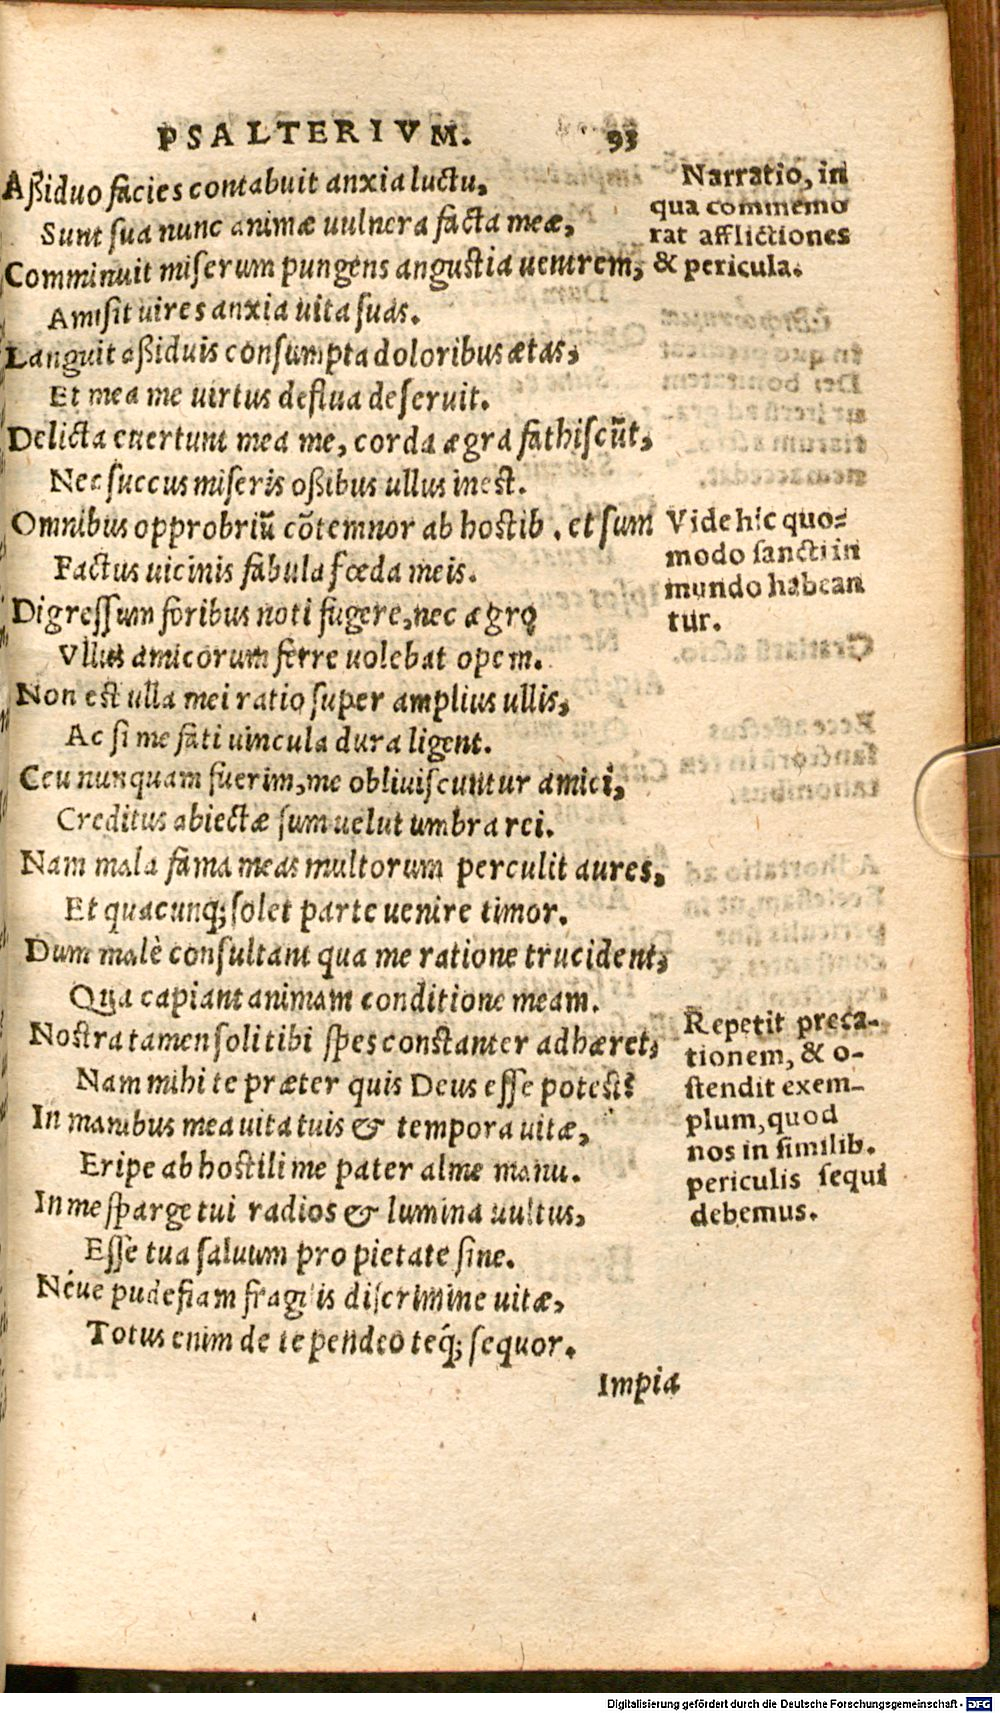 PSALTERIVM. 93
Aßiduo facies contabuit anxia luctu,
Sunt sua nunc animæ uulnera facta meæ,
Comminuit miserum pungens angustia uentrem,
Amisit uires anxia uita suas.
Languit aßiduis consumpta doloribus ætas,
Et mea me uirtus destua deseruit.
Delicta euertunt mea me, corda ægra fathiscũt,
Nec succus miseris oßibus ullus inest.
Omnibus opprobriũ cõtemnor ab hostib. et sum
Factus uicinis fabula fœda meis.
Digressum foribus noti fugere, nec ægro
Vllus amicorum ferre uolebat opem.
Non est ulla mei ratio super amplius ullis,
Ac si me fati uincula dura ligent.
Ceu nunquam fuerim, me obliuiscuntur amici,
Creditus abiectæ sum uelut umbra rei.
Nam mala fama meas multorum perculit aures,
Et quacunq; solet parte uenire timor.
Dum malè consultant qua me ratione trucident,
Qua capiant animam conditione meam.
Nostra tamen soli tibi spes constanter adhæret,
Nam mihi te præter quis Deus esse potest?
In manibus mea uita tuis & tempora uitæ,
Eripe ab hostili me pater alme manu.
In me sparge tui radios & lumina uultus,
Esse tua saluum pro pietate sine.
Néue pudefiam fragilis discrimine uitæ,
Totus enim de te pendeo teq́; sequor.
Impia
Narratio, in
qua commemo
rat afflictiones
& pericula.
Vide hic quo-
modo sancti in
mundo habean
tur.
Repetit preca-
tionem, & o-
stendit exem-
plum, quod
nos in similib.
periculis sequi
debemus.
Digitalisierung gefördert durch die Deutsche Forschungsgemeinschaft - DFG